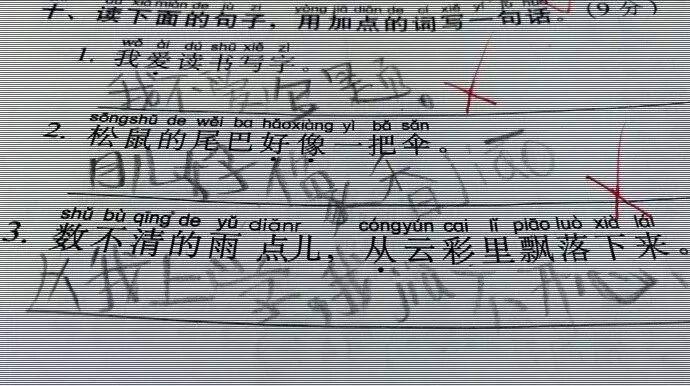 十、读下面的句子，用加点的词写一句话。(9分)
wǒ ài dú shū xiě zì
1. 我爱读书写字。
我不爱写里面。
sōngshǔ de wěi ba hǎoxiàng yì bǎ sǎn
2. 松鼠的尾巴好像一把伞。
月儿好像 香jiāo
shǔ bù qīng de yǔ diǎnr cóngyún cai lǐ piāo luò xià lái
3. 数不清的雨点儿，从云彩里飘落下来。
从我上学，我jiù不开心、